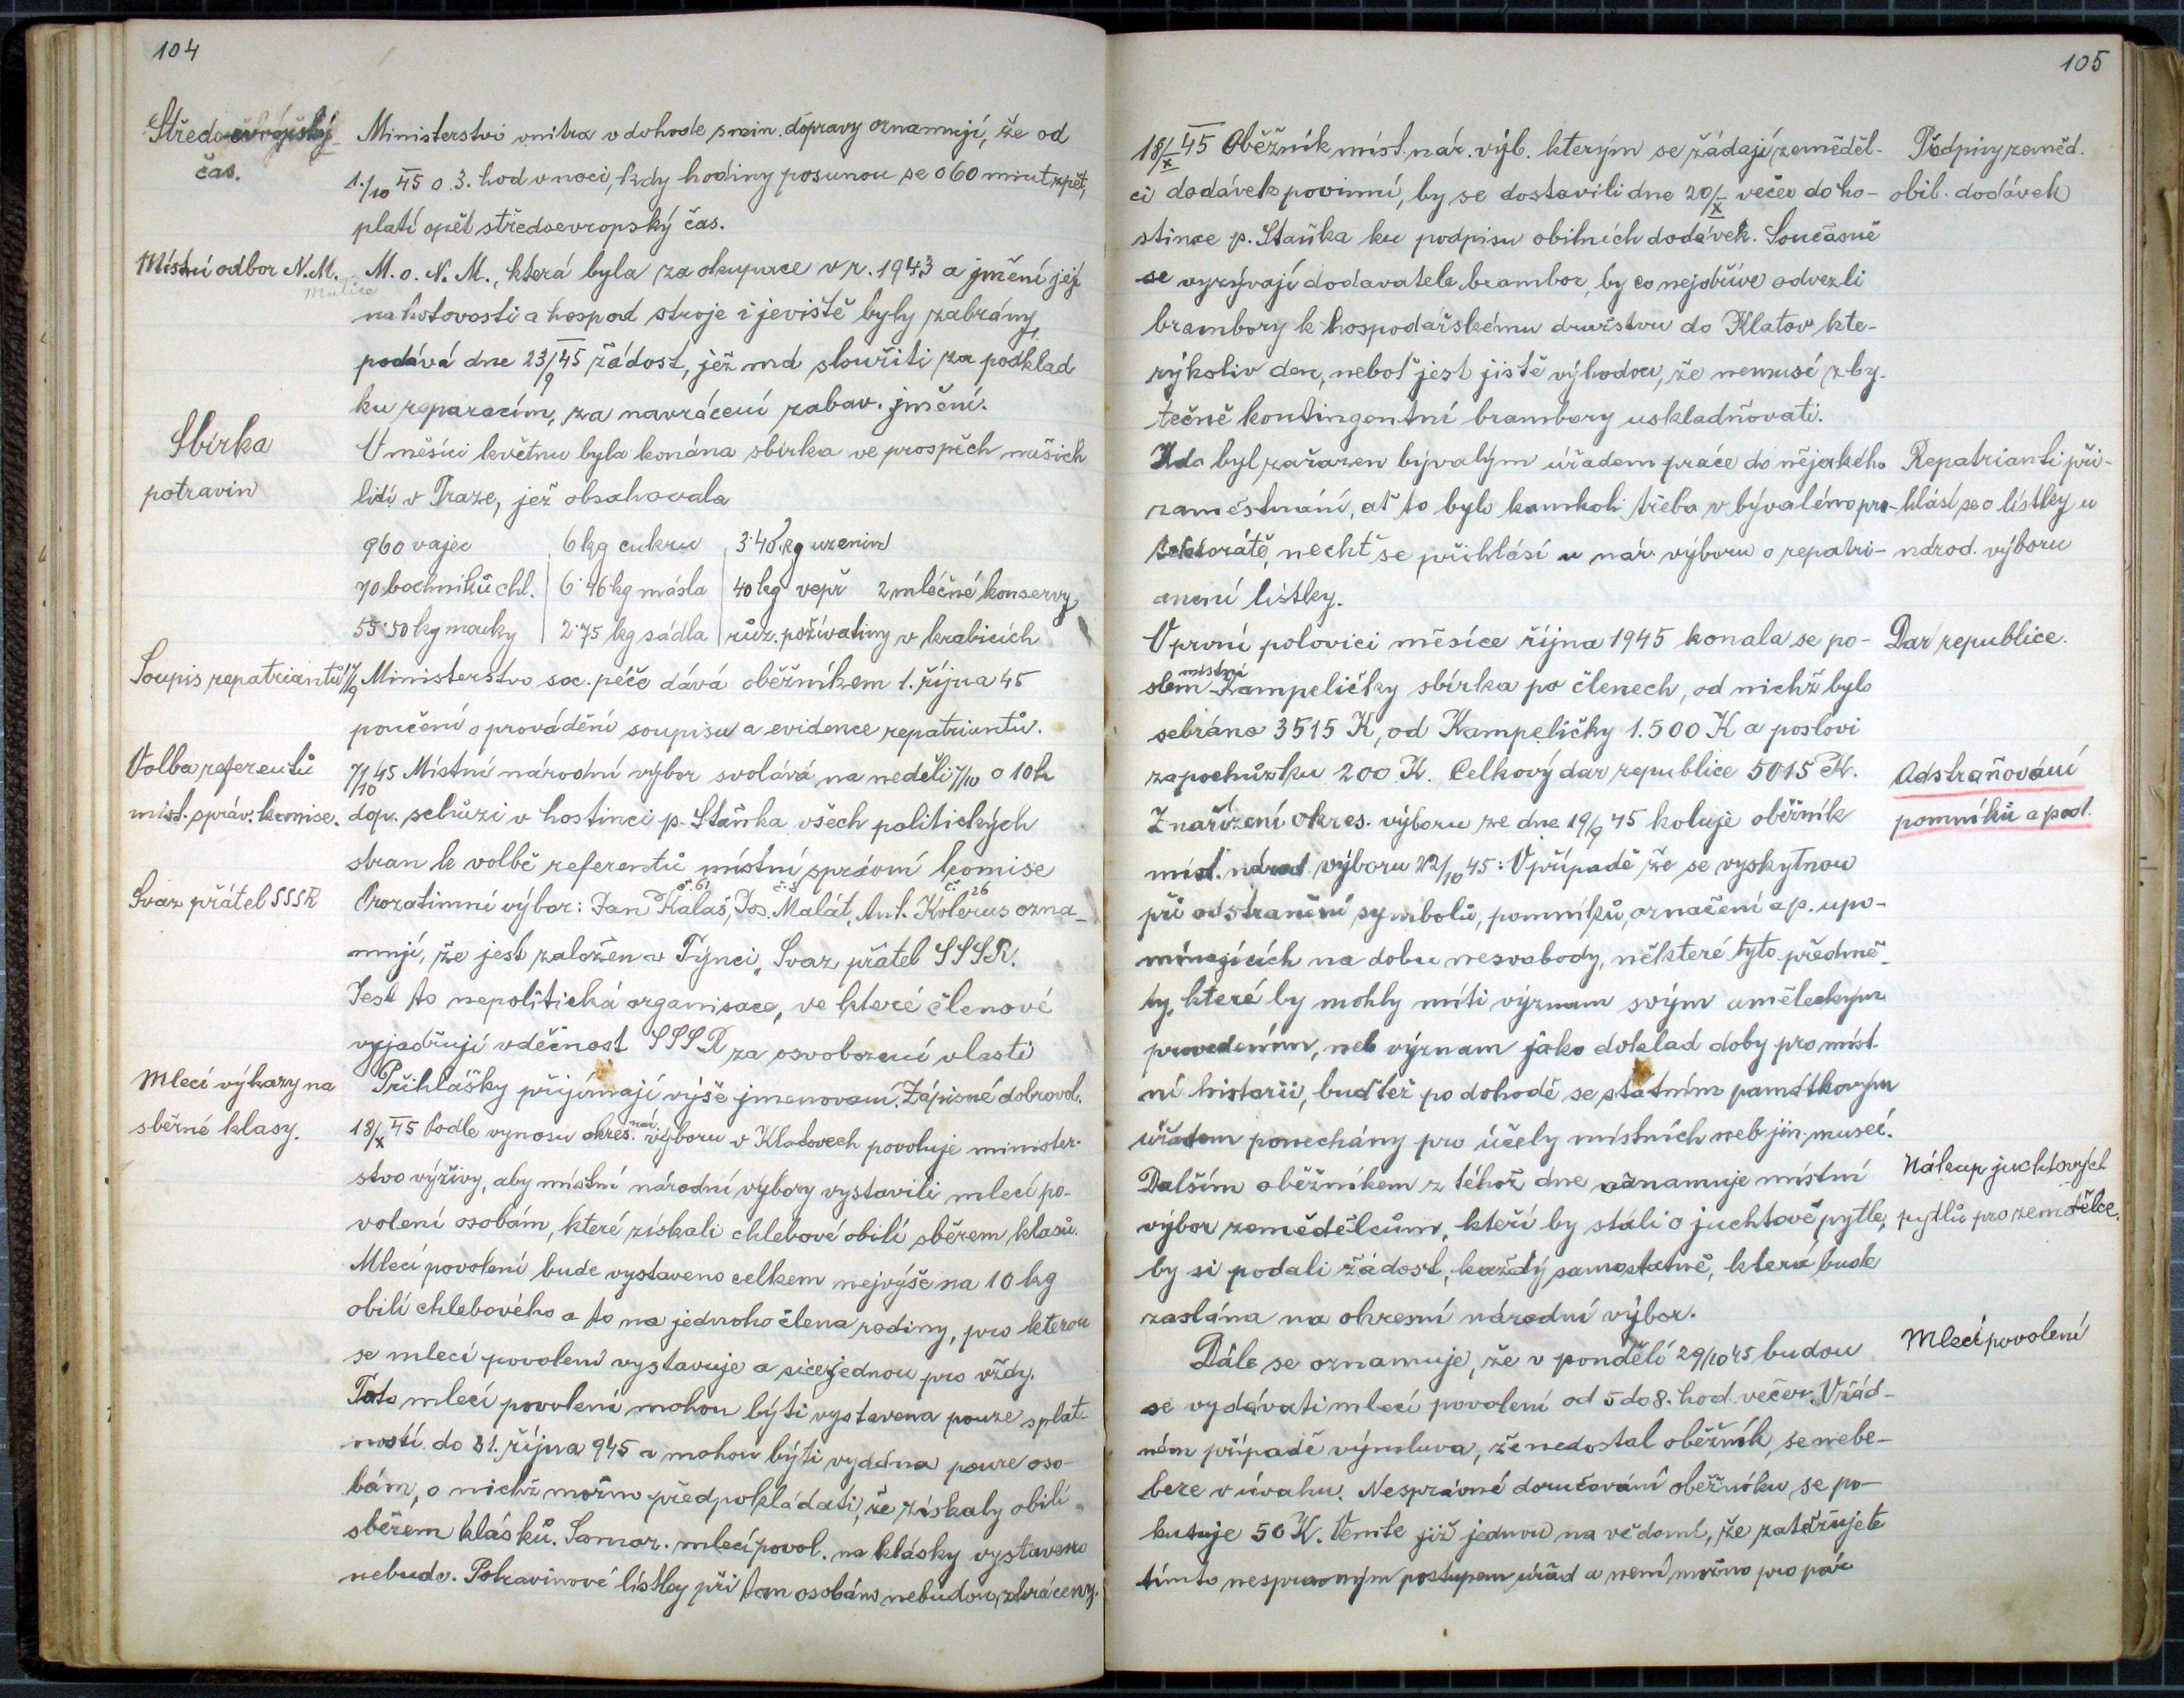 104
Středoevropský
čas.
Ministerstvo vnitra v dohodě s min. dopravy oznamují, že od
1./10 45 o 3. hod v noci, kdy hodiny posunou se o 60 minut zpět,
platí opět středoevropský čas.
Místní odbor N.M.
Matice
M. o. N. M., která byla za okupace v r. 1943 a jmění její
na hotovosti a hospod stroje i jeviště byly zabrány,
podává dne 23/9 45 žádost, jež má sloužiti za podklad
ku reparacím, za navrácení zabav. jmění.
Sbírka
potravin
V měsíci květnu byla konána sbírka ve prospěch našich
lidí v Praze, jež obsahovala
960 vajec 6 kg cukru 3·40 kg uzenin
70 bochníků chl. 6·46 kg másla 40 kg vepř 2 mléčné konservy
55·50 kg mouky 2·75 kg sádla růz. požívatiny v krabicích
Soupis repatriantů
17/9 Ministerstvo soc. péče dává oběžníkem 1. října 45
poučení o provádění soupisu a evidence repatriantů.
Volba referentů
míst. správ. komise.
7/10 45 Místní národní výbor svolává na neděli 7/10 o 10 h
dop. schůzi v hostinci p. Staňka všech politických
stran k volbě referentů místní správní komise
Svaz přátel SSSR
Prozatimní výbor: Jan Kalaš č. 61, Jos. Malát č. 8, Ant. Kolerus č. 26 ozna-
mují, že jest založen v Týnci „Svaz přátel SSSR.
Jest to nepolitická organisace, ve které členové
vyjadřují vděčnost SSSR za osvobození vlasti
Přihlášky přijímají výše jmenovaní. Zápisné dobrovol.
Mlecí výkazy na
sběrné klasy.
18/X 45 Podle vynosu okres. nár. výboru v Klatovech povoluje minister-
stvo výživy, aby místní národní výbory vystavili mlecí po-
volení osobám, které získali chlebové obilí sběrem klasů.
Mlecí povolení bude vystaveno celkem nejvýše na 10 kg
obilí chlebového a to na jednoho člena rodiny, pro kterou
se mlecí povolení vystavuje a sice jednou pro vždy.
Tato mlecí povolení mohou býti vystavena pouze s plat-
ností do 31. října 945 a mohou býti vydána pouze oso-
bám, o nichž možno předpokládati, že získaly obilí
sběrem klásků. Samoz. mlecí povol. na klásky vystaveno
nebude. Potravinové lístky při tom osobám nebudou zkráceny.
105
18/X 45 Oběžník míst. nár. výb. kterým se žádají zeměděl-
ci dodávek povinní, by se dostavili dne 20/X večer do ho-
stince p. Staňka ku podpisu obilních dodávek. Současně
se vyzývají dodavatele brambor, by co nejdříve odvezli
brambory k hospodářskému družstvu do Klatov kte-
rýkoliv den, neboť jest jistě výhodou, že nemusí zby-
tečně kontingentní brambory uskladňovati.
Podpisy zeměd.
obil. dodávek
Kdo byl zařazen bývalým úřadem práce do nějakého
zaměstnání, ať to bylo kamkoli třeba v bývalém pro-
tektorátě, nechť se přihlásí u nár. výboru o repatri-
ační lístky.
Repatrianti při-
hlásí se o lístky u
národ. výboru
V první polovici měsíce října 1945 konala se po-
slem místní Kampeličky sbírka po členech, od nichž bylo
sebráno 3515 K, od Kampeličky 1.500 K a poslovi
za pochůzku 200 K. Celkový dar republice 5015 K.
Dar republice.
Z nařízení okres. výboru ze dne 19/9 45 koluje oběžník
míst. národ. výboru 22/10 45: V případě že se vyskytnou
při odstranění symbolů, pomníků, označení a p. upo-
mínajících na dobu nesvobody, některé tyto předmě-
ty, které by mohly míti význam svým uměleckým
provedením, neb význam jako doklad doby pro míst-
ní historii, buďtež po dohodě se státním památkovým
úřadem ponechány pro účely místních neb jin. museí.
Odstraňování
pomníků a pod.
Dalším oběžníkem z téhož dne oznamuje místní
výbor zemědělcům, kteří by stáli o juchtové pytle,
by si podali žádost, každý samostatně, která bude
zaslána na okresní národní výbor.
Nákup juchtových
pytlů pro zemědělce.
Dále se oznamuje, že v pondělí 29/10 45 budou
se vydávati mlecí povolení od 5 do 8. hod. večer. V žád-
ném případě výmluva, že nedostal oběžník, se nebe-
bere v úvahu. Nesprávné doručování oběžníku se po-
kutuje 50 K. Vemte již jednou na vědomí, že zatěžujete
tímto nesprávným postupem úřad a není možno pro pár
Mlecí povolení